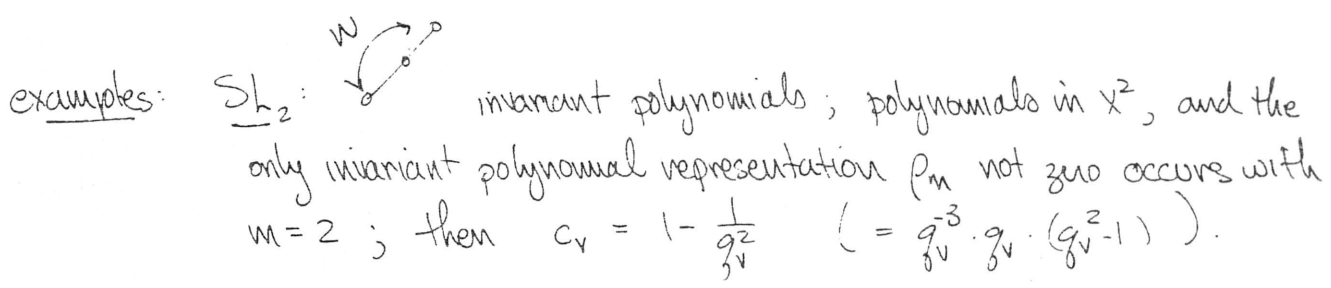 W
examples: SL₂: invariant polynomials; polynomials in X², and the
only invariant polynomial representation ρₘ not zero occurs with
m = 2; then c_v = 1 - 1/q_v² ( = q_v⁻³ · q_v · (q_v² - 1) ).